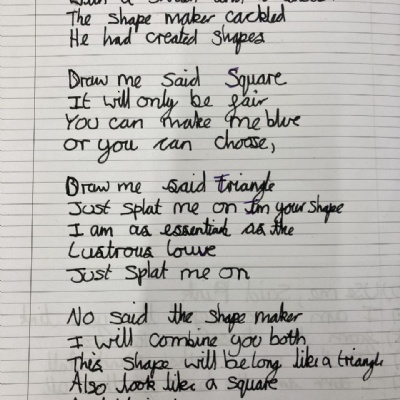 The shape maker cackled
He had created shapes
Draw me said Square
It will only be fair
You can make me blue
Or you can choose,
Draw me said Triangle
Just splat me on I'm your shape
I am as essential as the
Lustrous Louvre
Just splat me on
No said the shape maker
I will combine you both
This shape will belong like a triangle
Also look like a square